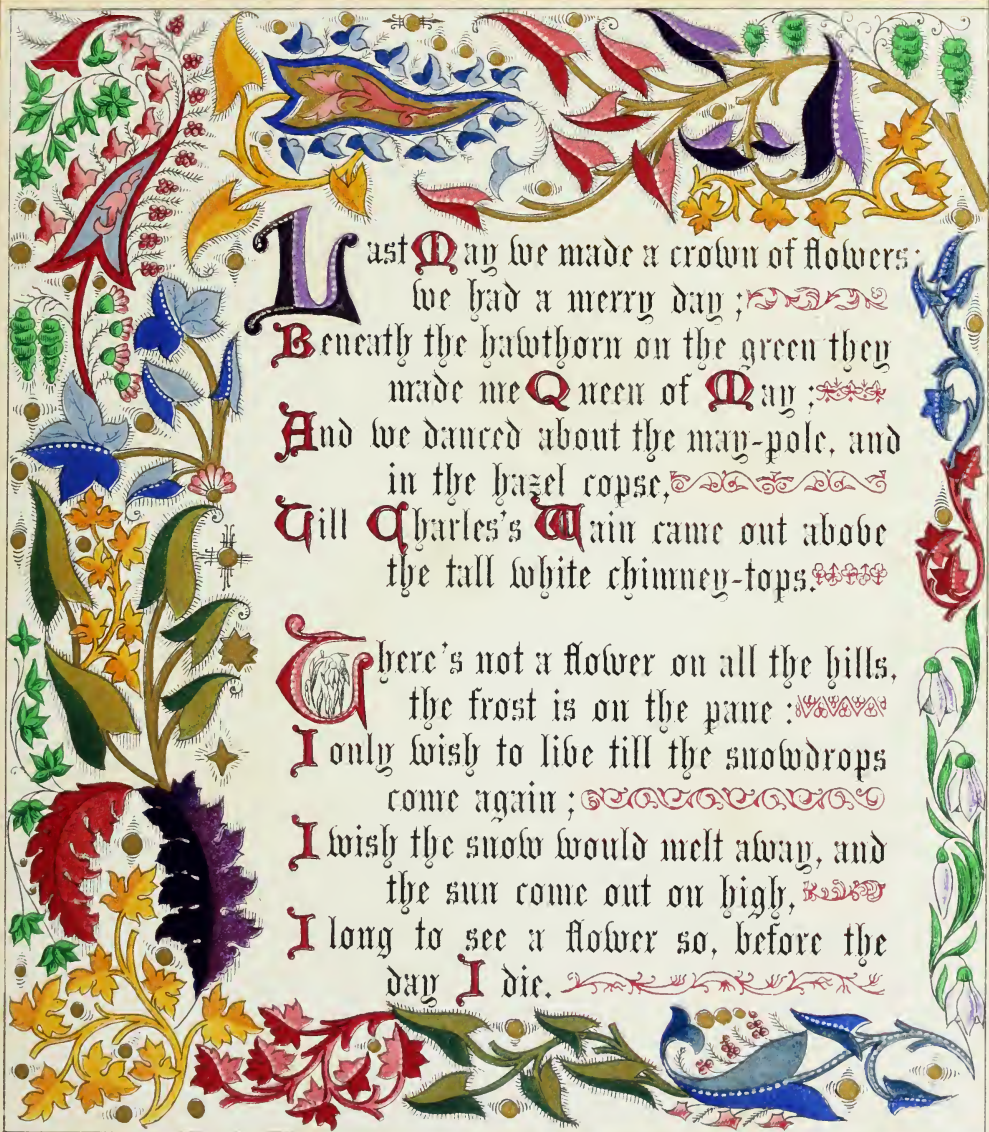 Last May we made a crown of flowers:
we had a merry day;
Beneath the hawthorn on the green they
made me Queen of May;
And we danced about the may-pole, and
in the hazel copse,
Till Charles's Wain came out above
the tall white chimney-tops.
There's not a flower on all the hills,
the frost is on the pane:
I only wish to live till the snowdrops
come again;
I wish the snow would melt away, and
the sun come out on high,
I long to see a flower so, before the
day I die.